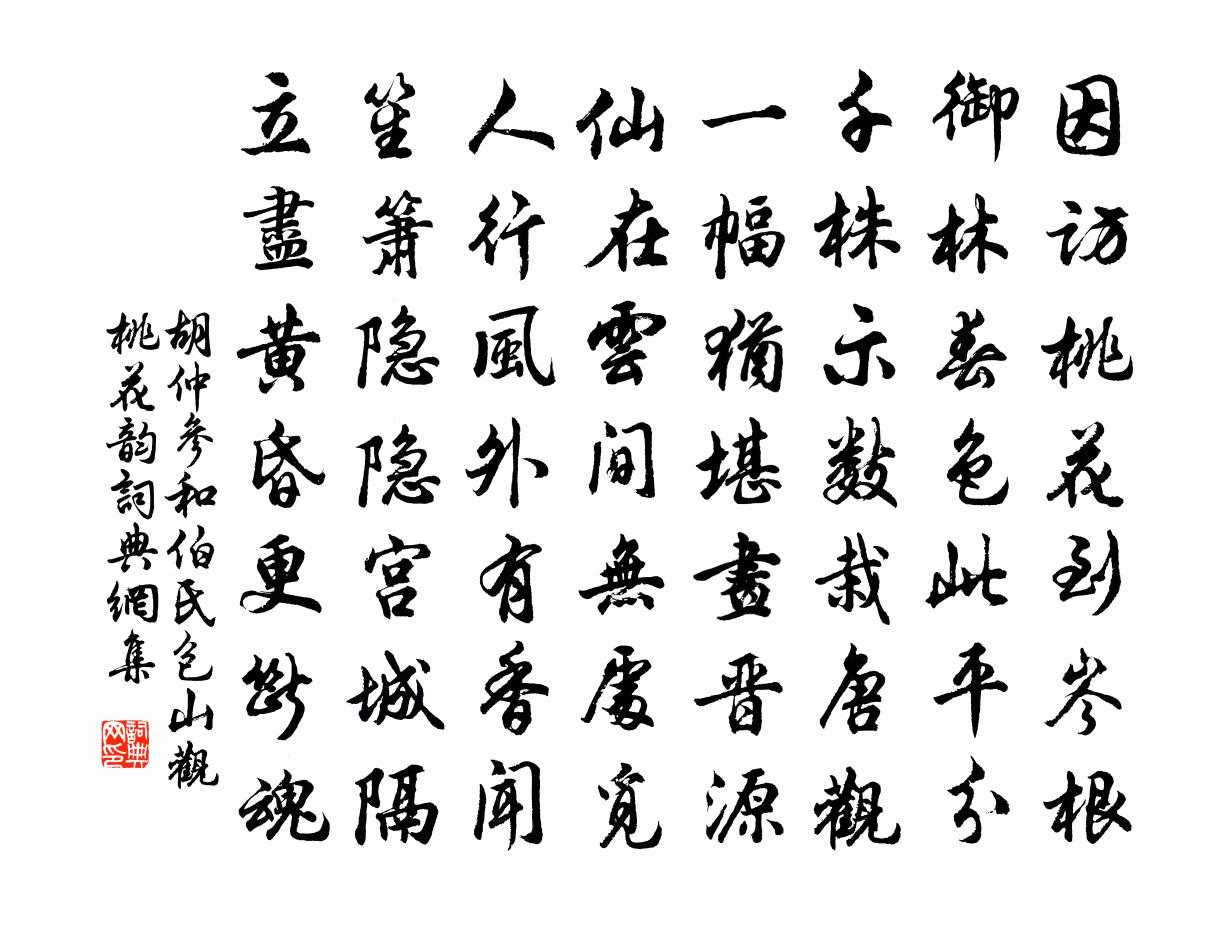 因訪桃花到岑根
御林春色此平分
千株示數栽唐觀
一幅猶堪畫晋源
仙在雲間無處覓
人行風外有香聞
笙簫隐隐宫城隔
立盡黄昏更斷魂
胡仲參和伯氏包山觀
桃花韵詞典網集
詞典
网印